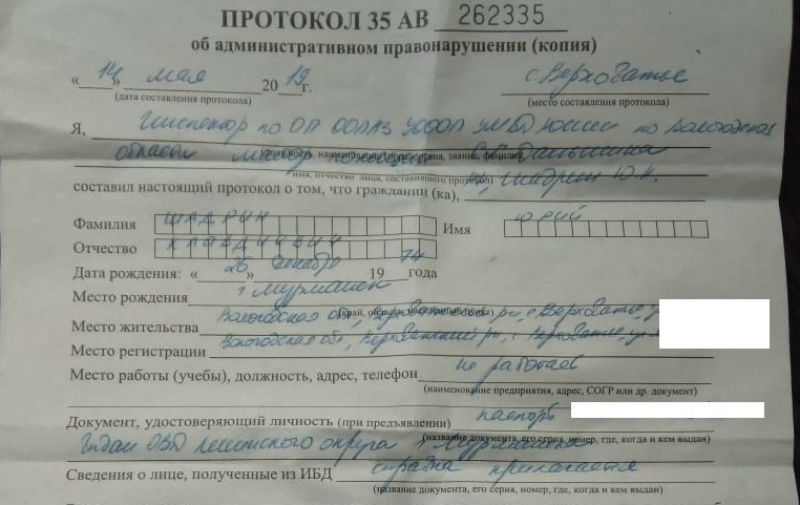 ПРОТОКОЛ 35 АВ 262335
об административном правонарушении (копия)
« 14 » мая 2019 г. с. Верховажье
(дата составления протокола) (место составления протокола)
Я, Инспектор по ОП ООПАЗ УООП УМВД России по Вологодской
области майор полиции
имя, отчество лица, составившего протокол)
составил настоящий протокол о том, что гражданин (ка), Шадрин Ю.К.
Фамилия ШАДРИН Имя ЮРИЙ
Отчество КЛАВДИЕВИЧ
Дата рождения: « 26 » декабря 1974 года
Место рождения г. Мурманск
Место жительства Вологодская обл., Верховажский р-н, с. Верховажье, ул
Место регистрации Вологодская обл., Верховажский р-н, с. Верховажье, ул.
Место работы (учебы), должность, адрес, телефон не работает
(наименование предприятия, адрес, СОГР или др. документ)
Документ, удостоверяющий личность (при предъявлении) паспорт
(название документа, его серия, номер, где, когда и кем выдан)
выдан ОВД Ленинского округа г. Мурманска
Сведения о лице, полученные из ИБД справка прилагается
(название документа, его серия, номер, где, когда и кем выдан)